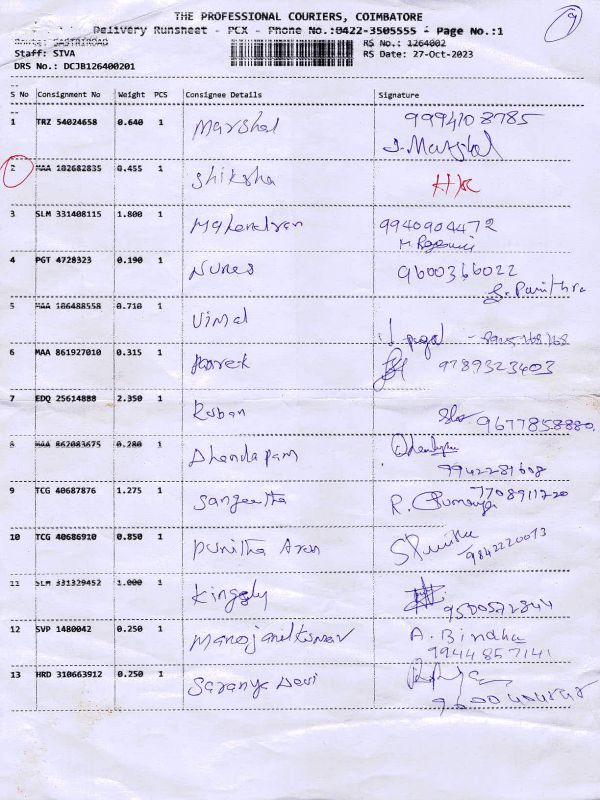 9
THE PROFESSIONAL COURIERS, COIMBATORE
Delivery Runsheet - PCX - Phone No.:0422-3505555 - Page No.:1
SASTRIROAD
RS No.: 1264002
Staff: SIVA
RS Date: 27-Oct-2023
DRS No.: DCJB126400201
S No Consignment No Weight PCS Consignee Details Signature
1 TRZ 54024658 0.640 1 Marshal 9994108785
J. Marshal
2 MAA 102682835 0.455 1 Shiksha
3 SLM 331408115 1.800 1 Mahendran 9940904472
4 PGT 4728323 0.190 1 Nunes 9600366022
S. Pavithra
5 MAA 106488558 0.710 1 Vimal
6 MAA 861927010 0.315 1 9789323403
7 EDQ 25614888 2.350 1 Ruban 9677858880
8 MAA 862083675 0.280 1 Dhendapam
9942281608
9 TCG 40687876 1.275 1 Sangeetha R. 7708911220
10 TCG 40686910 0.850 1 Punitha Aran 9842220073
11 SLM 331329452 1.000 1 Kingsly
9500572844
12 SVP 1480042 0.250 1 Manojanilkumar A. Bindhu
9944857141
13 HRD 310663912 0.250 1 Saranya Devi